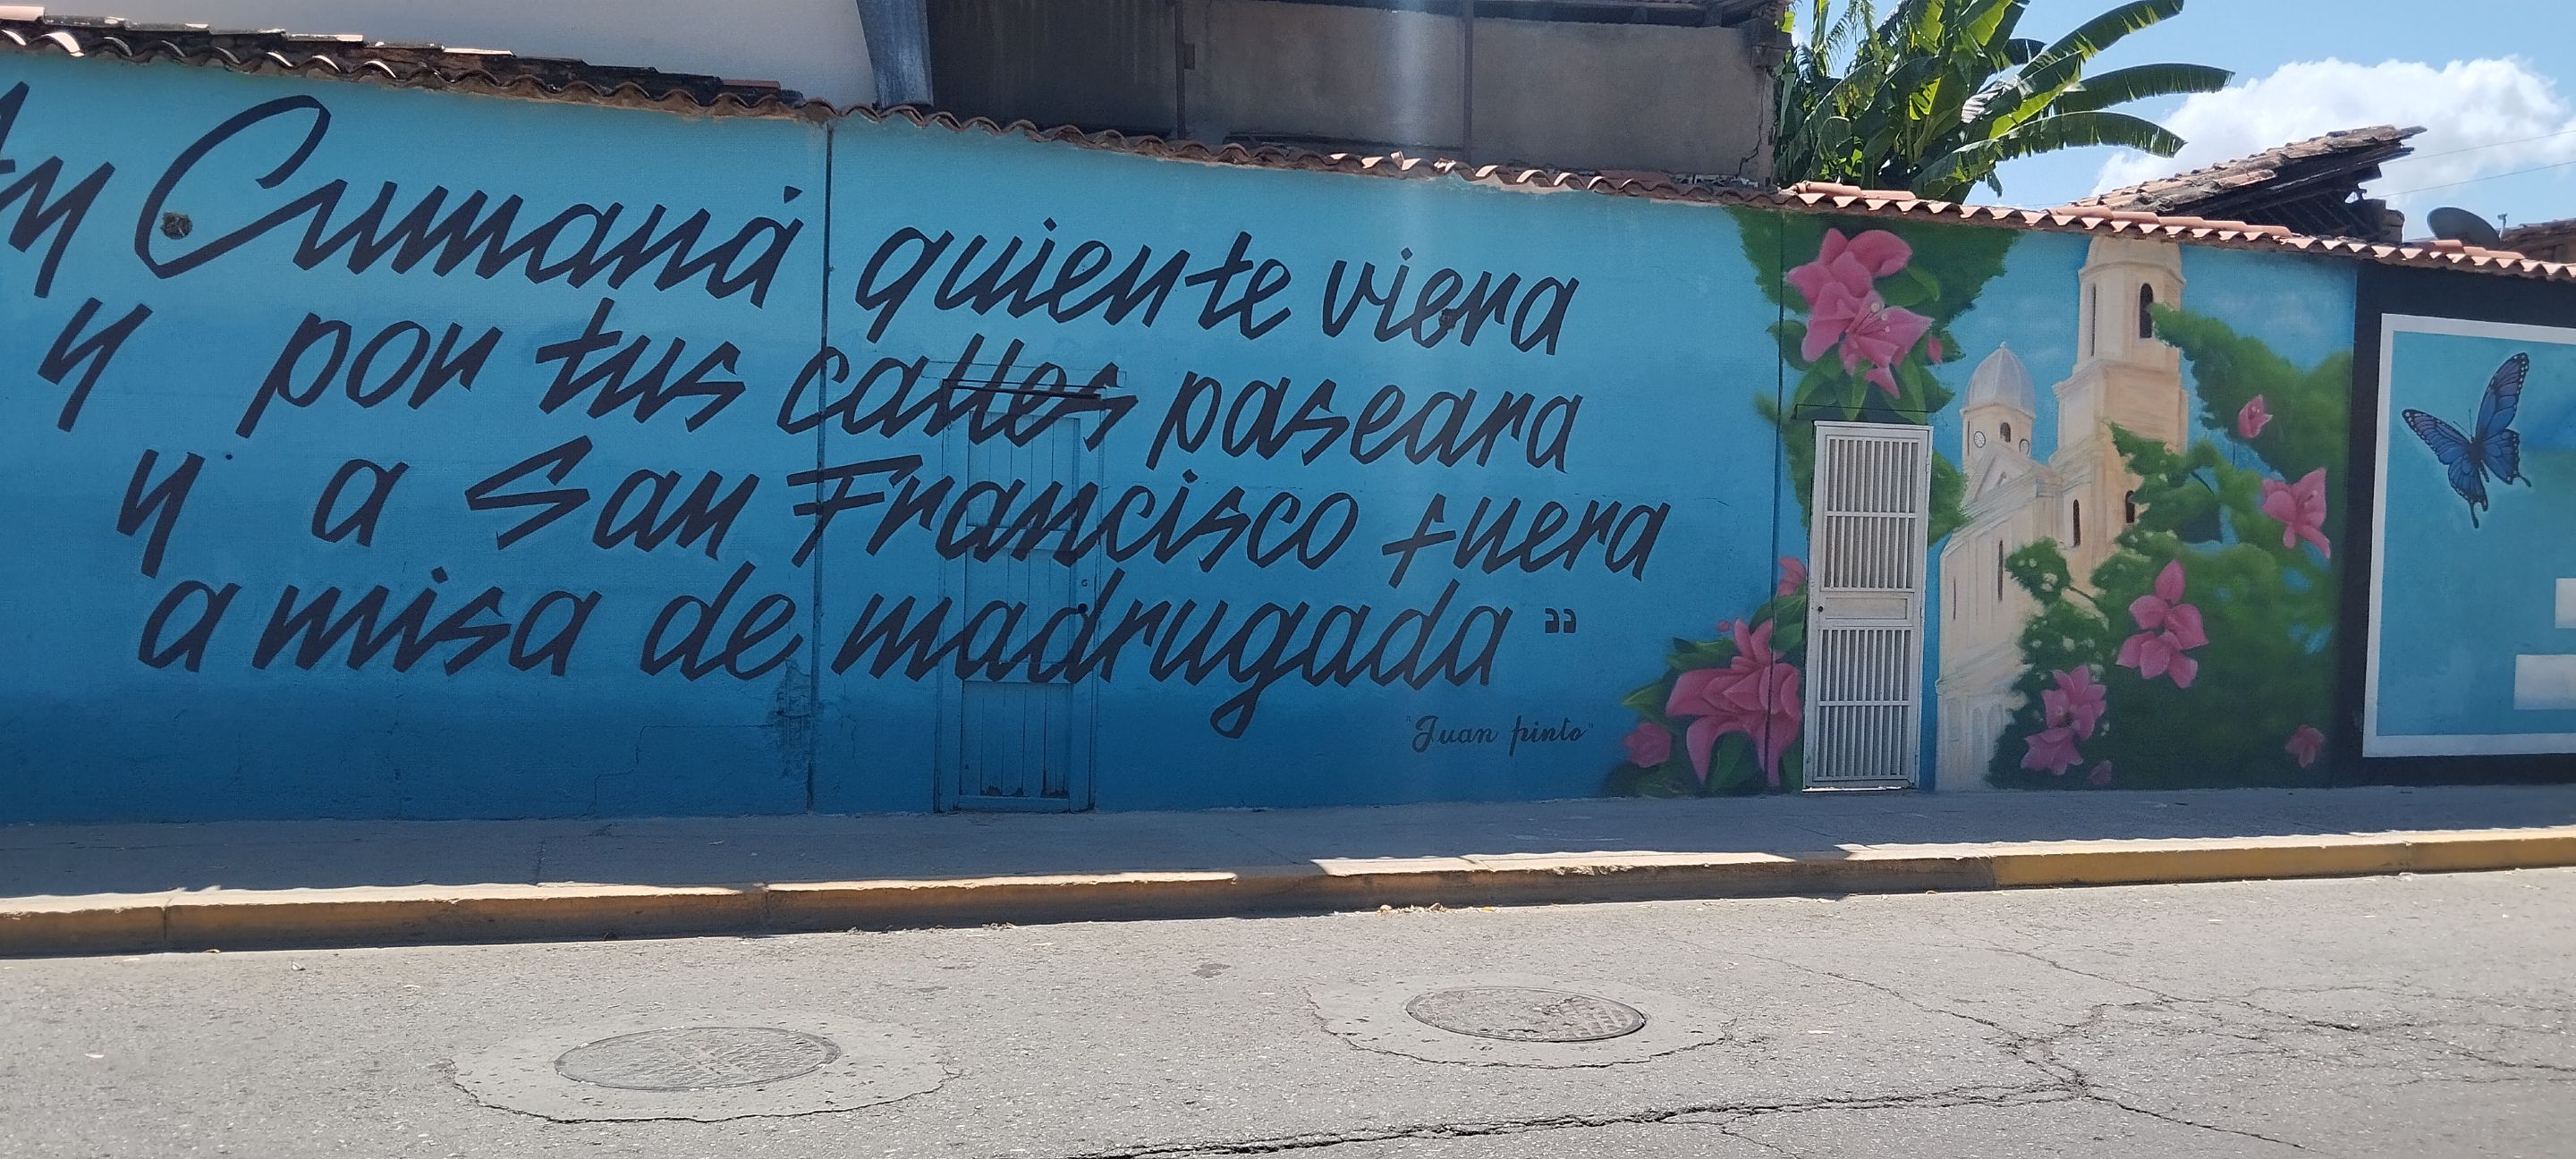 Ay Cumaná quien te viera
y por tus calles paseara
y a San Francisco fuera
a misa de madrugada "
"Juan pinto"